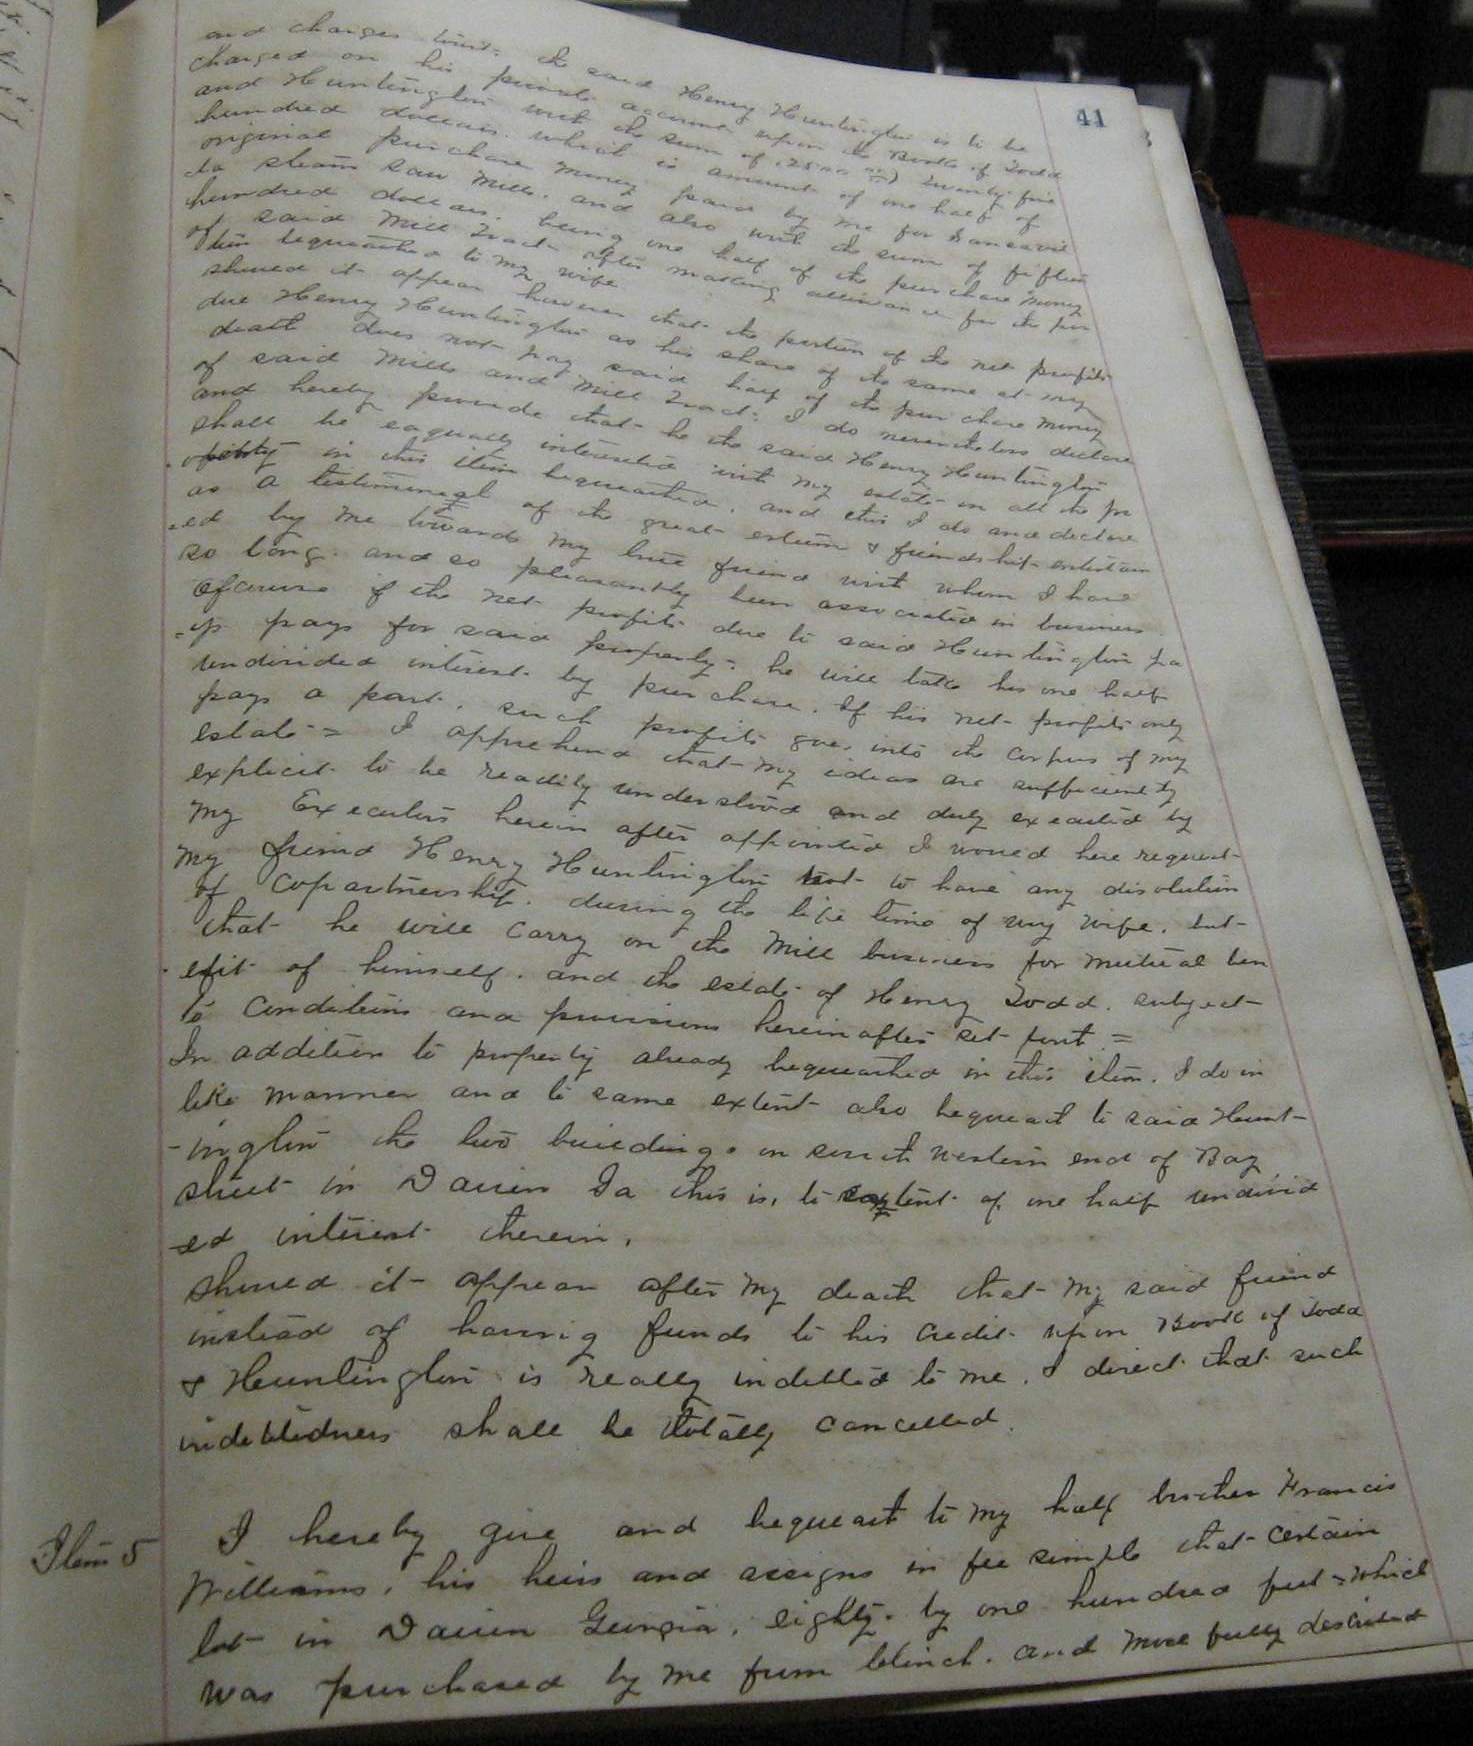 41
and charges viz: the said Henry Huntington is to be
charged on his private account upon the Books of Todd
and Huntington with the sum of (2500 00/) twenty five
hundred dollars. which is amount of one half of
original purchase money paid by me for
steam saw Mills. and also with the sum of fifteen
hundred dollars. being one half of the purchase money
of said Mill Tract after making allowance for the por
tion bequeathed to my wife
should it appear however that the portion of the net profits
due Henry Huntington as his share of the same at my
death does not pay said half of the purchase money
of said Mills and Mill Tract: I do nevertheless declare
and hereby provide that he the said Henry Huntington
shall be equally interested with my estate in all the pr
operty in this item bequeathed, and this I do and declare
as a testimonial of the great esteem & friendship entertain
-ed by me towards my true friend with whom I have
so long. and so pleasantly been associated in business.
Of course if the net profits due to said Huntington
pays for said property: he will take his one half
undivided interest by purchase. If his net profits only
pays a part, such profits goes into the corpus of my
estate = I apprehend that my ideas are sufficiently
explicit to be readily understood and duly executed by
my Executors herein after appointed I would here request
my friend Henry Huntington not to have any disolution
of Copartnership. during the life time of my wife. but
that he will carry on the Mill business for mutual ben
efit of himself. and the estate of Henry Todd. subject
to Conditions and provisions herein after set fort =
In addition to property already bequeathed in this item. I do in
like manner and to same extent also bequeath to said Hunt-
-ington the two buildings on south western end of Bay
street in Darien Ga this is, to extent of one half undivid
-ed interest therein.
should it appear after my death that my said friend
instead of having funds to his credit upon Book of Todd
& Huntington is really indebted to me. I direct that such
indebtedness shall be totally cancelled.
Item 5 I hereby give and bequeath to my half brother Francis
Williams, his heirs and assigns in fee simple that certain
lot in Darien Georgia, eighty. by one hundred feet = which
was purchased by me from Clinch. and more fully described